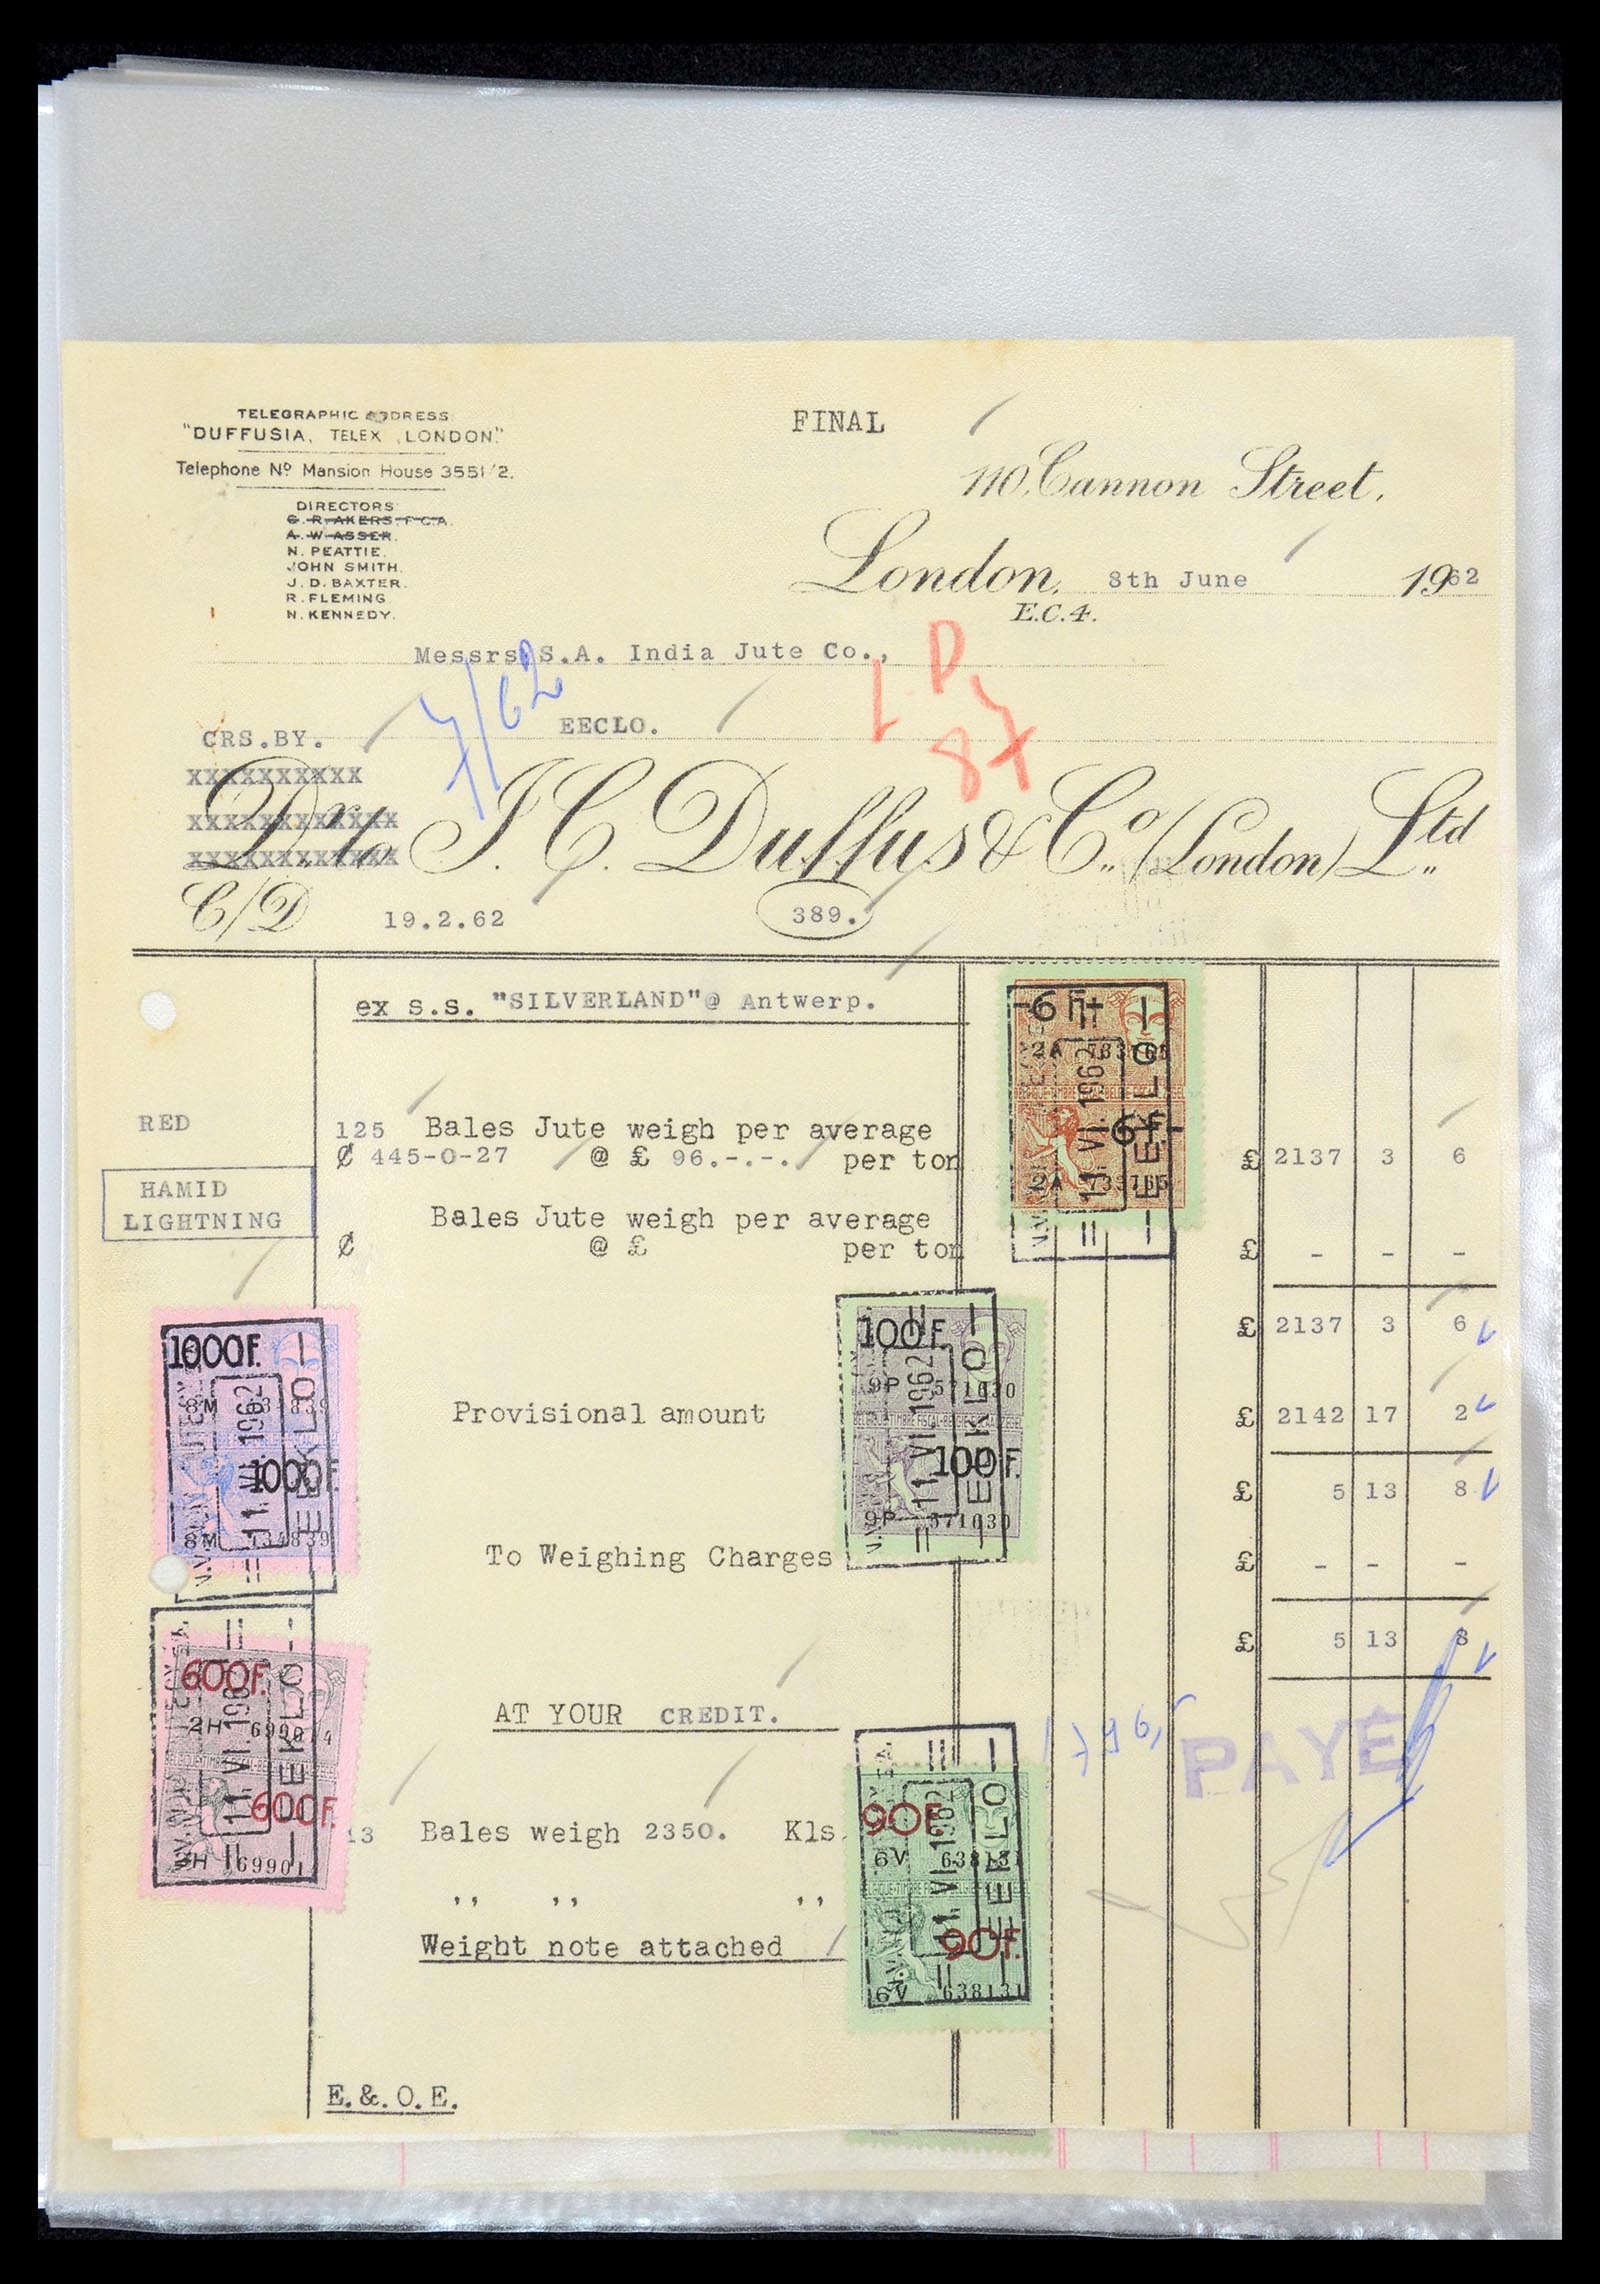 FINAL
TELEGRAPHIC ADDRESS
"DUFFUSIA, TELEX, LONDON."
Telephone No Mansion House 3551/2.
DIRECTORS
G. R. AKERS, F.C.A.
A. W. ASSER.
N. PEATTIE.
JOHN SMITH.
J. D. BAXTER.
R. FLEMING.
N. KENNEDY.
110, Cannon Street,
London, 8th June 1962
E.C.4.
Messrs. S.A. India Jute Co.,
7/62
EECLO.
CRS.BY.
XXXXXXXXXX
XXXXXXXXXXXX
XXXXXXXXXXXX
Dr. to J. C. Duffus & Co. (London) Ltd.
C/D 19.2.62 389.
ex s.s. "SILVERLAND" @ Antwerp.
6 F.
2A 733165
6 F.
2A 733165
11 VI. 1962
EEKLO
RED
125 Bales Jute weigh per average
₵ 445-0-27 @ £ 96.-.-. per ton £ 2137 3 6
HAMID
LIGHTNING
Bales Jute weigh per average
₵ @ £ per ton £ - - -
£ 2137 3 6
1000F.
8M 134839
1000F.
8M 134839
11 VI. 1962
EEKLO
100F.
9P 571030
BELGIQUE-TIMBRE FISCAL-BELGIE
100F.
9P 571030
11 VI 1962
EEKLO
Provisional amount £ 2142 17 2
£ 5 13 8
To Weighing Charges £ - - -
£ 5 13 8
600F.
2H
600F.
11 VI. 196
EEKLO
AT YOUR CREDIT.
PAYÉ
13 Bales weigh 2350. Kls.
,, ,, ,,
90F.
6V 638131
90F.
6V 638131
11 VI 1962
EEKLO
Weight note attached
E.&.O.E.